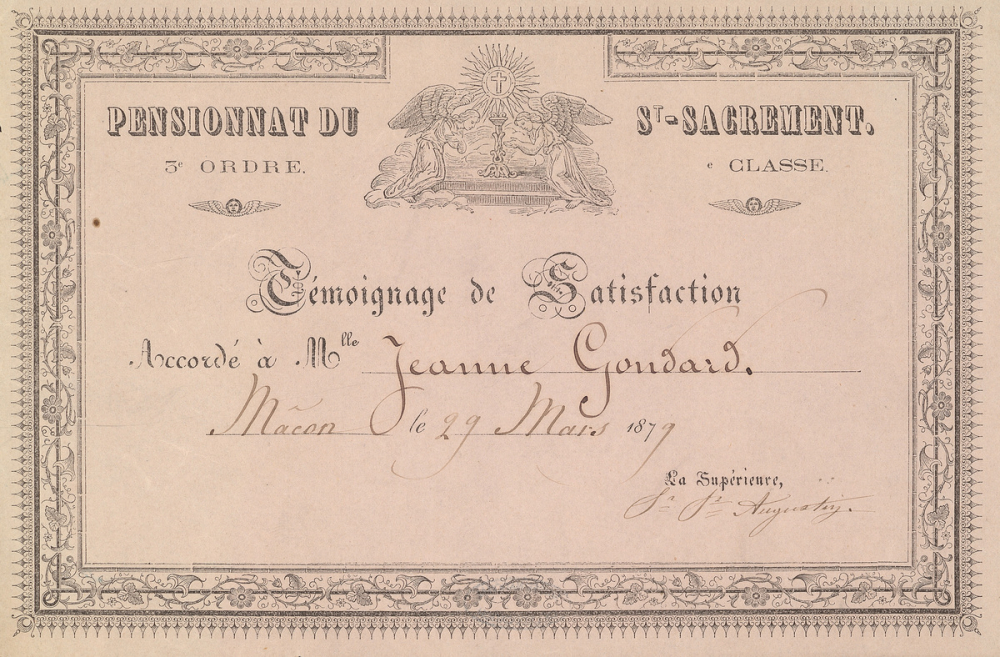 PENSIONNAT DU ST-SACREMENT.
3e ORDRE. e CLASSE.
Témoignage de Satisfaction
Accordé à Mlle Jeanne Goudard.
Mâcon le 29 Mars 1879
La Supérieure,
Sr St Augustin.